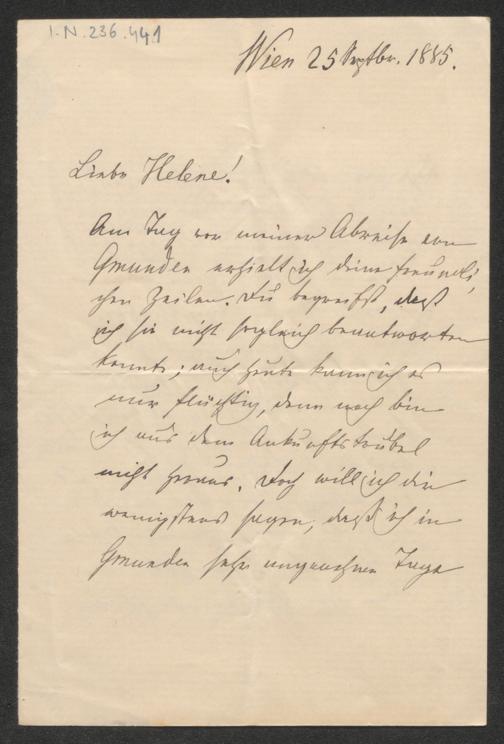 I.N. 236.441
Wien 25 Septbr. 1885.
Liebe Helene!
Am Tag vor meiner Abreise von
Gmunden erhielt ich deine freundli-
chen Zeilen. Du begreifst, daß
ich sie nicht sogleich beantworten
konnte; auch heute kann ich es
nur flüchtig, denn noch bin
ich aus dem Ankunftstrubel
nicht heraus. Doch will ich dir
wenigstens sagen, daß ich in
Gmunden sehr angenehme Tage